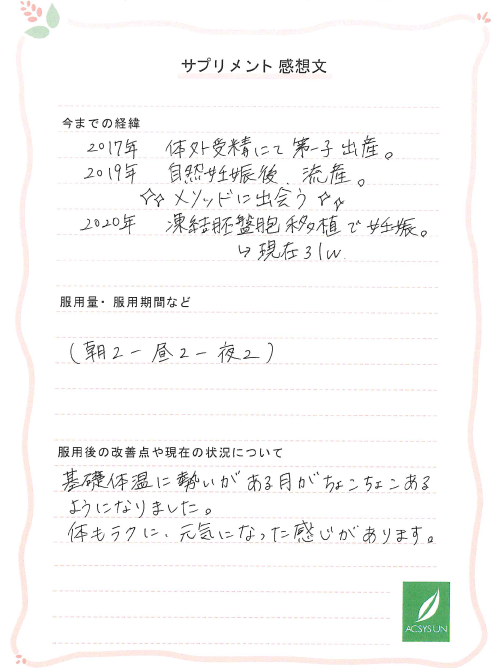 サプリメント 感想文
今までの経緯
2017年 体外受精にて第一子出産。
2019年 自然妊娠後、流産。
☆☆メソッドに出会う☆☆
2020年 凍結胚盤胞移植で妊娠。
↳現在31w.
服用量・服用期間など
(朝2-昼2-夜2)
服用後の改善点や現在の状況について
基礎体温に勢いがある月がちょこちょこある
ようになりました。
体もラクに、元気になった感じがあります。
ACSYSUN